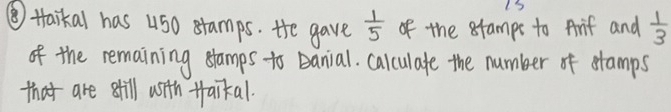 13
⑧ Haikal has 450 stamps. He gave 1/5 of the stamps to Arif and 1/3
of the remaining stamps to Danial. Calculate the number of stamps
that are still with Haikal.